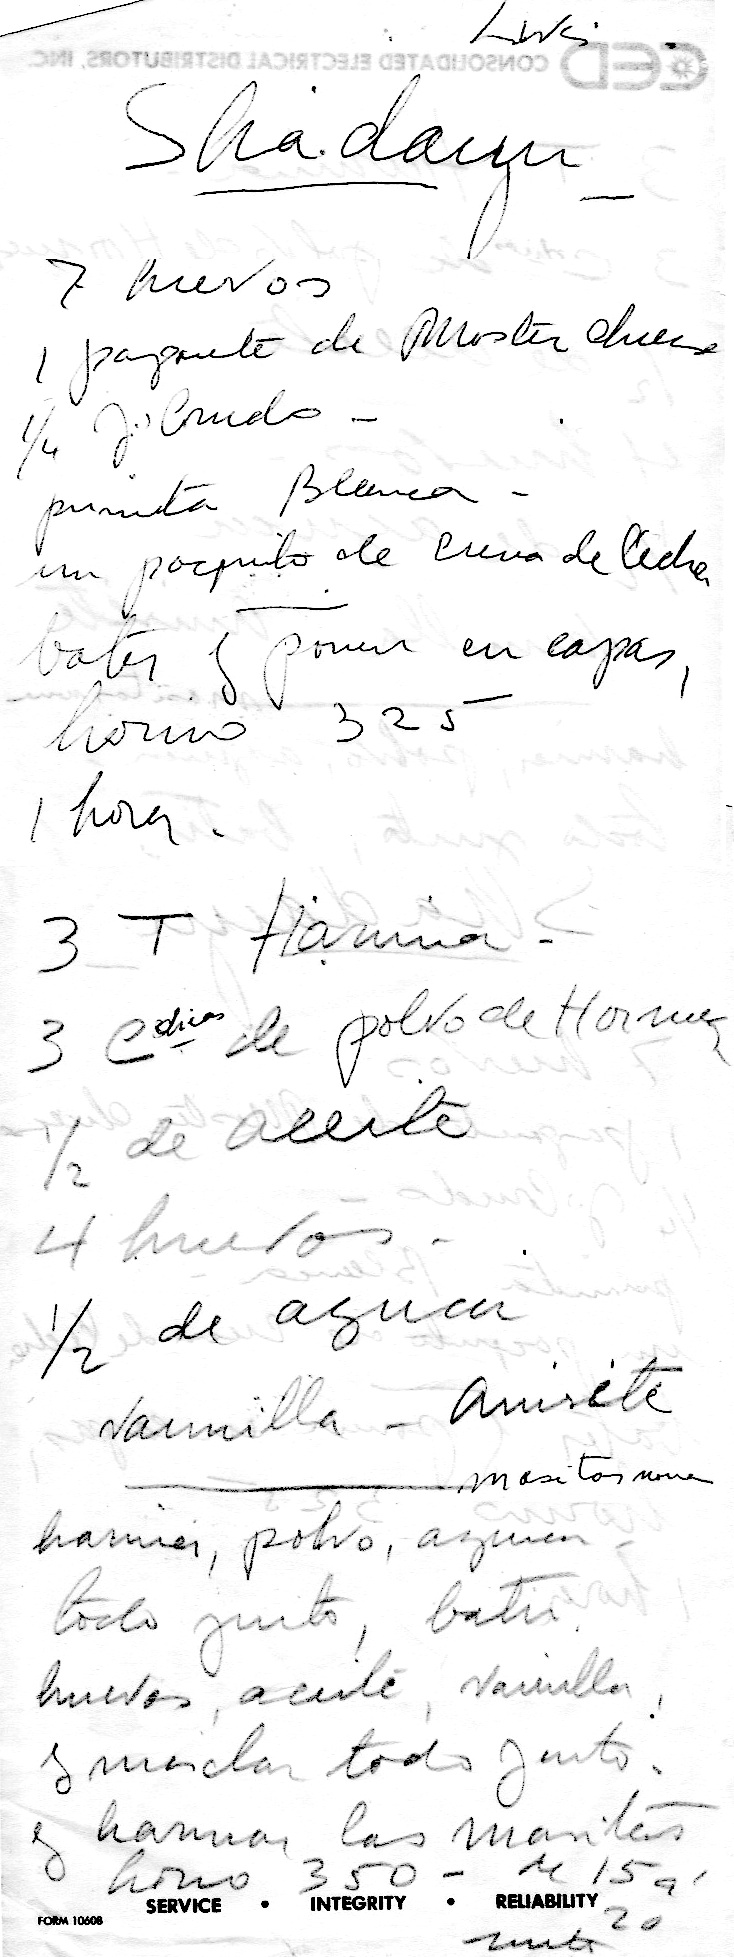 CED CONSOLIDATED ELECTRICAL DISTRIBUTORS, INC.
7 huevos
1 paquete de Moster chees
1/4 J. Crudo -
pimita Blanca -
un poquito de crema de leche
batir y poner en capas,
horno 325
1 hora.
3 T Harina -
3 Cditas de polvo de Hornear
1/2 de aceite
4 huevos -
1/2 de azucar
Vainilla - Anisete
masitas
harina, polvo, azucar -
todo junto, batir
huevos, aceite, vainilla,
y mesclar todo junto.
y harmar las masitas
horno 350 - de 15 a
20
SERVICE • INTEGRITY • RELIABILITY
FORM 10608